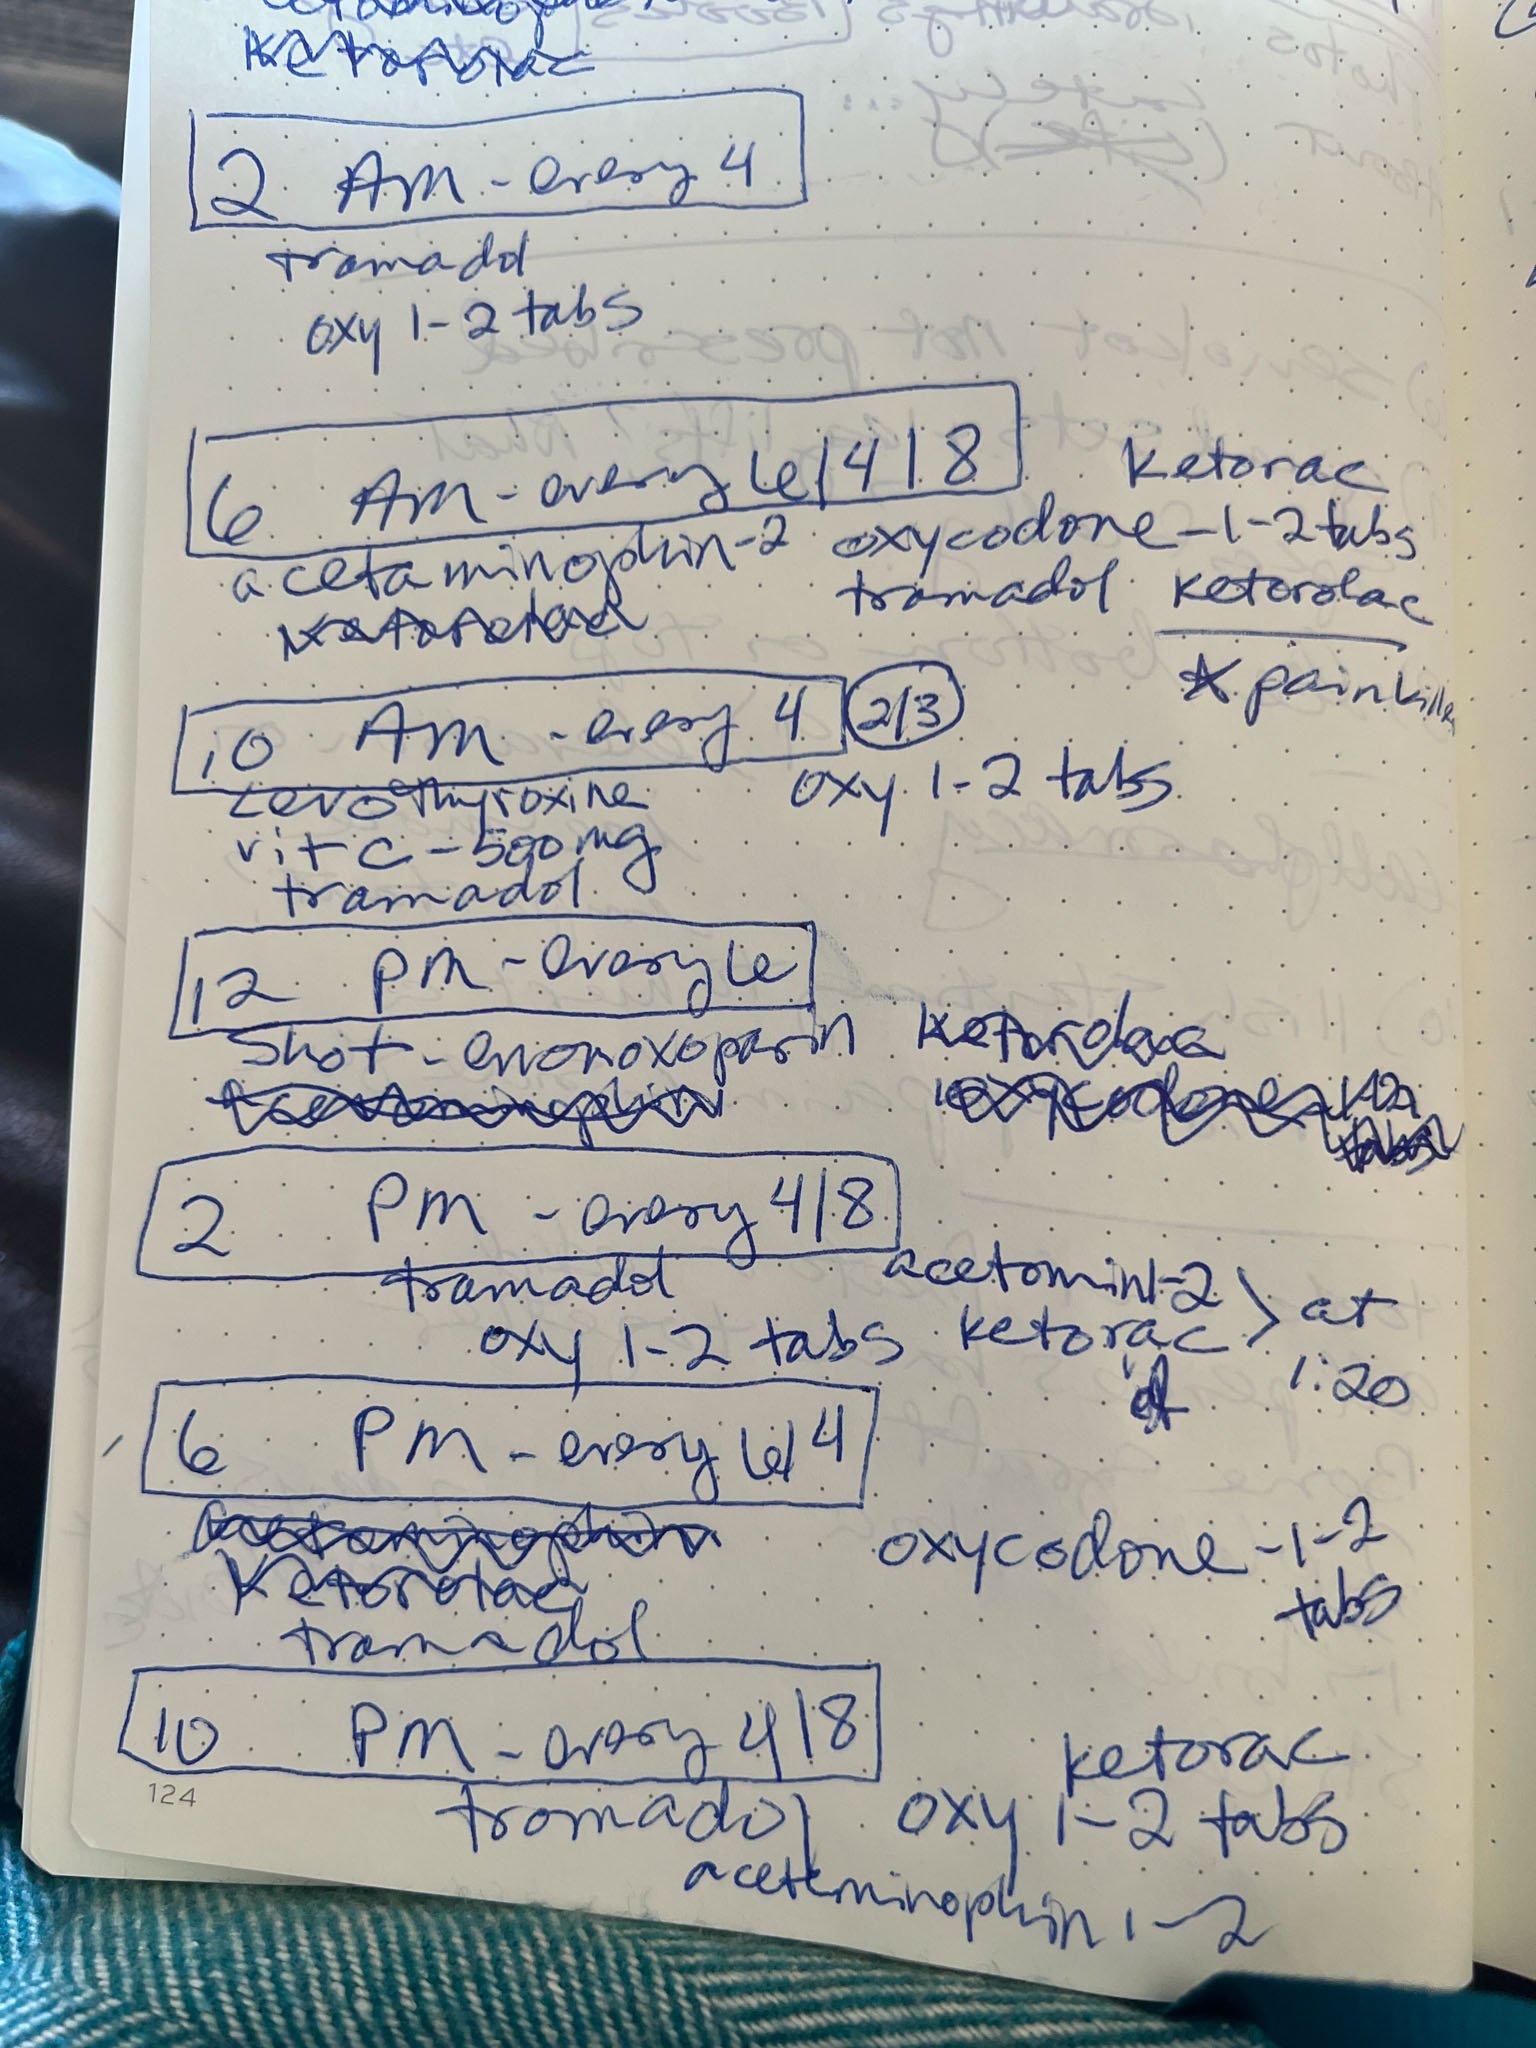 Ketorolac
2 AM - every 4
tramadol
oxy 1-2 tabs
6 AM - every 6/4/8
ketorac
acetaminophin-2
oxycodone - 1-2 tabs
tramadol ketorolac
ketorolac
* painkiller
10 AM - every 4 2/3
Levothyroxine
oxy 1-2 tabs
vit C - 500 mg
tramadol
12 PM - every 6
Shot - enonoxoparin
Ketorolac
acetaminophin
oxycodone 1-2
tabs
2 PM - every 4/8
tramadol
acetomin 1-2
oxy 1-2 tabs
ketorac > at
1:20
6 PM - every 6/4
acetaminophin
oxycodone - 1-2
tabs
Ketorolac
tramadol
10 PM - every 4/8
ketorac
tramadol
oxy 1-2 tabs
aceteminophin 1-2
124